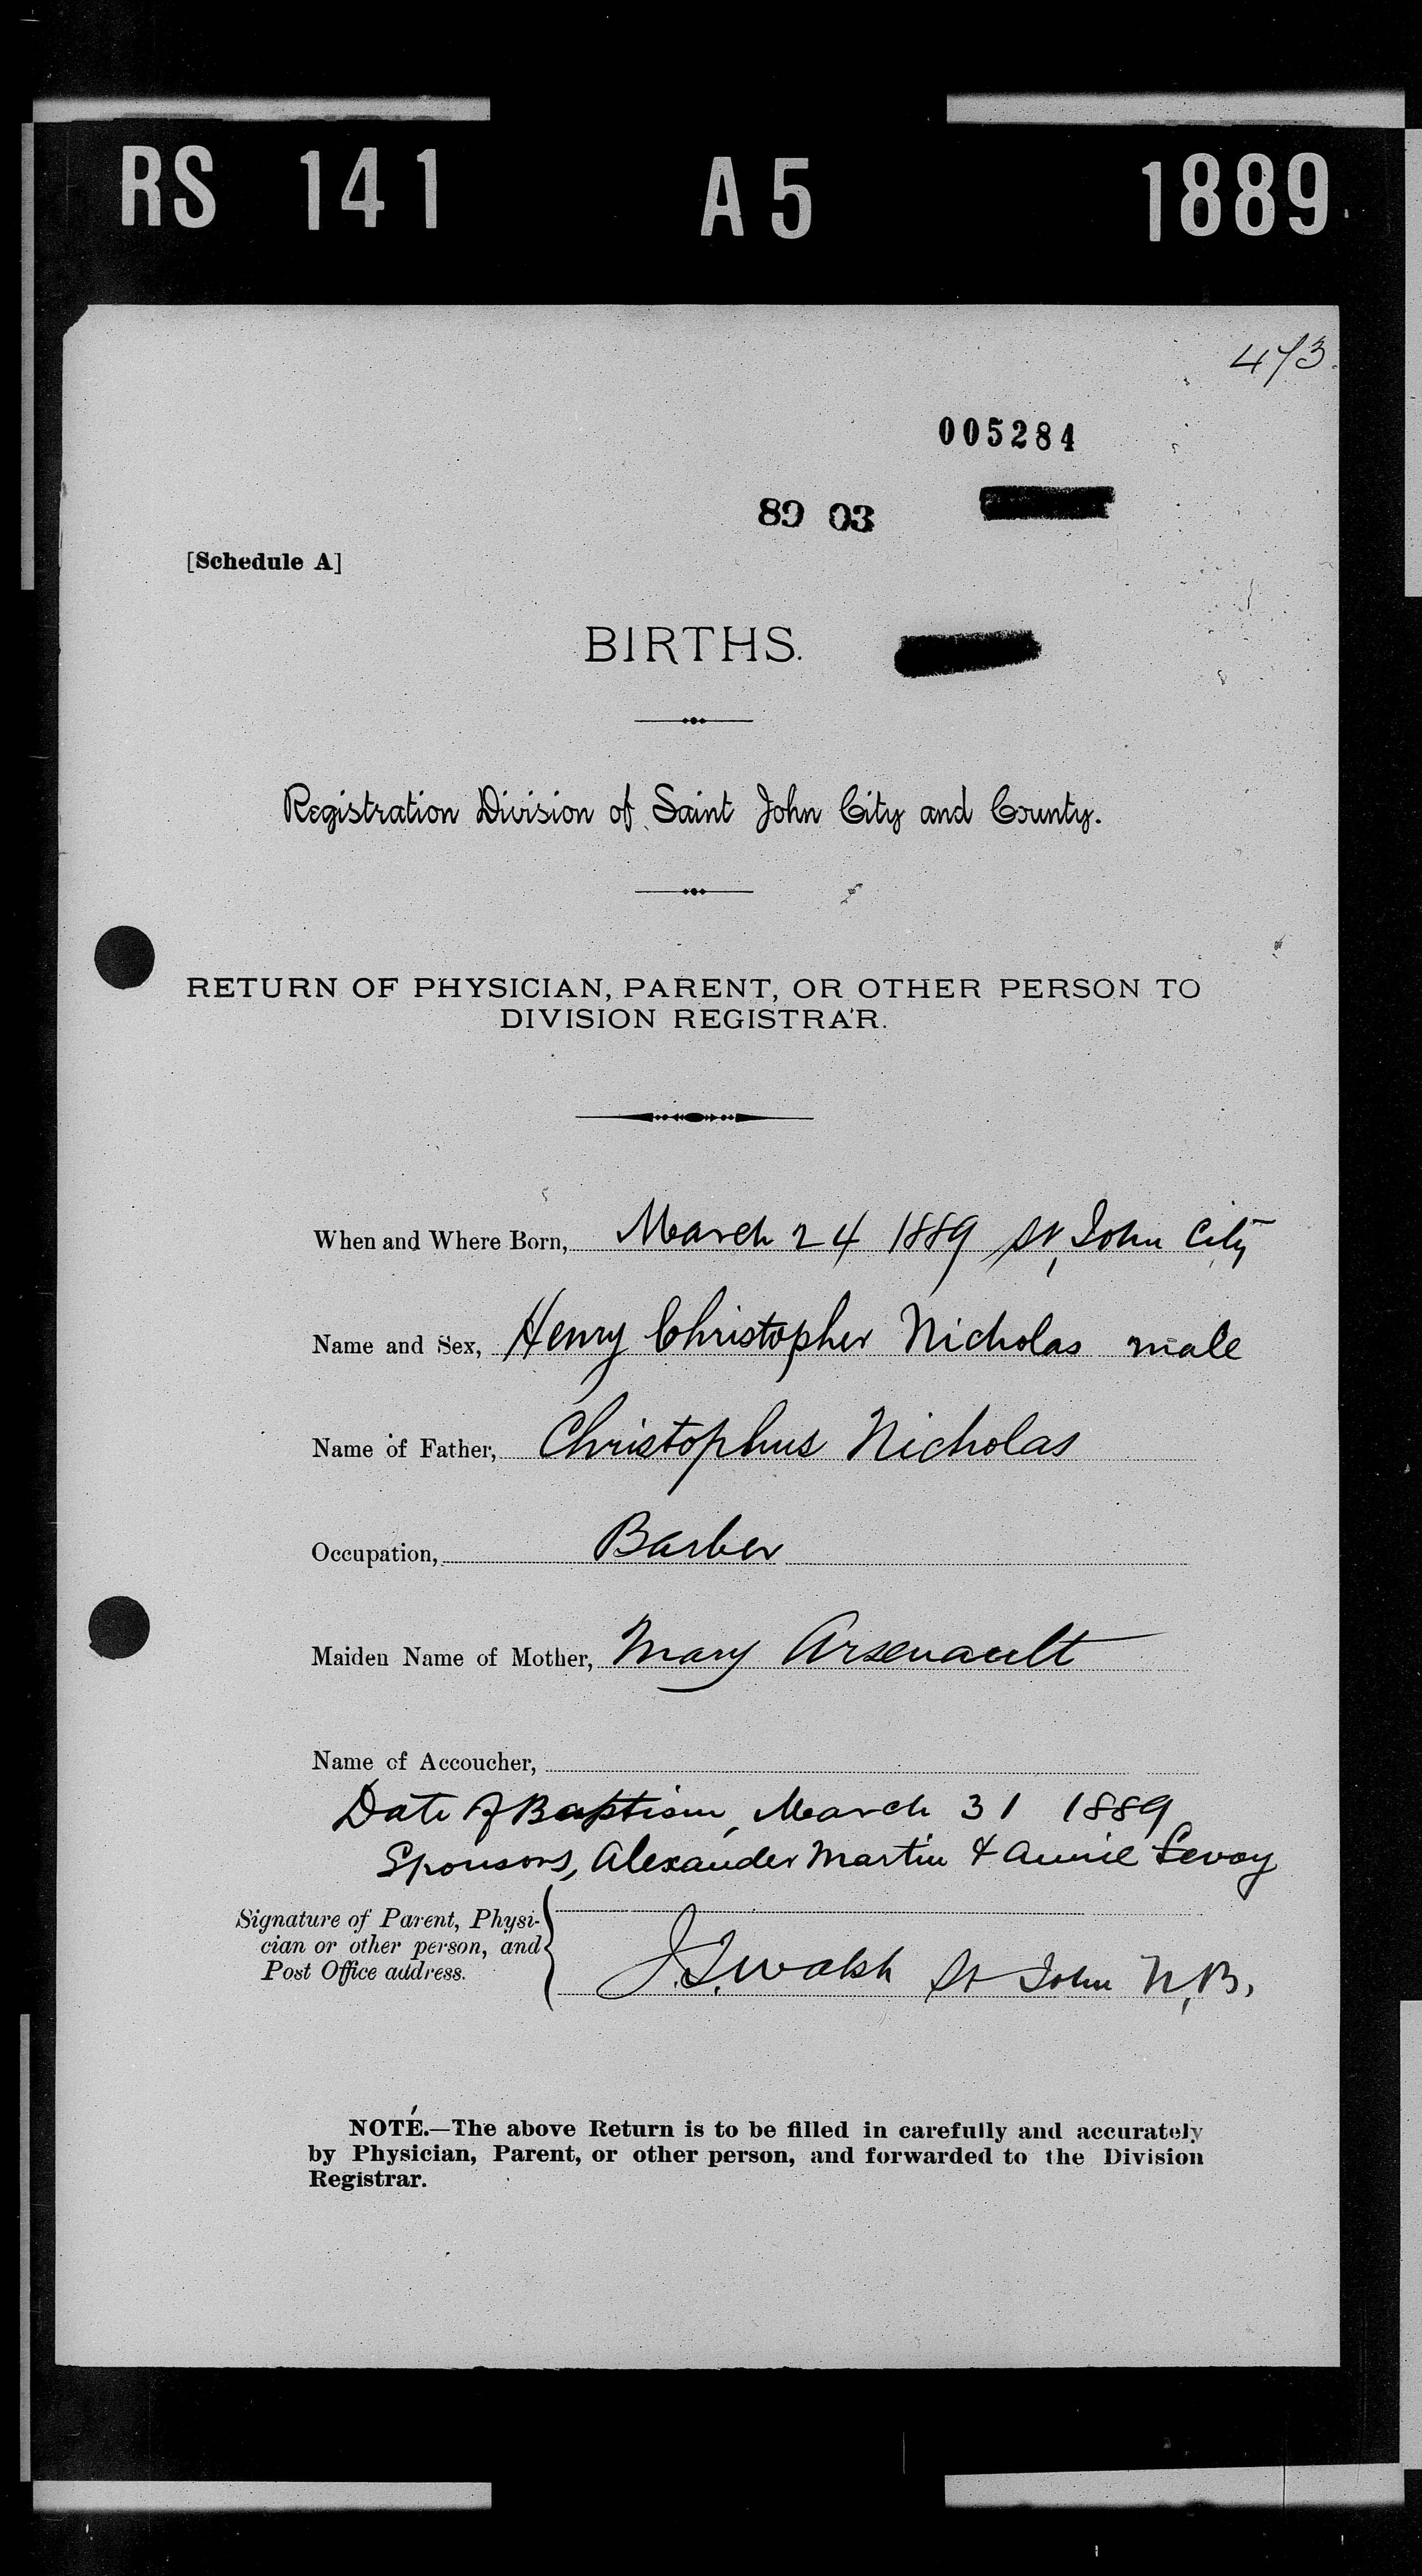 RS 141 A5 1889
473.
005284
89 03
[Schedule A]
BIRTHS.
Registration Division of Saint John City and County.
RETURN OF PHYSICIAN, PARENT, OR OTHER PERSON TO
DIVISION REGISTRAR.
When and Where Born, March 24 1889 St, John City
Name and Sex, Henry Christopher Nicholas male
Name of Father, Christophus Nicholas
Occupation, Barber
Maiden Name of Mother, Mary Arsenault
Name of Accoucher,
Date of Baptism, March 31 1889
Sponsors, Alexander Martin & Annie Levoy
Signature of Parent, Physi-
cian or other person, and
Post Office address.
J. J. Walsh St John N, B,
NOTE.—The above Return is to be filled in carefully and accurately
by Physician, Parent, or other person, and forwarded to the Division
Registrar.